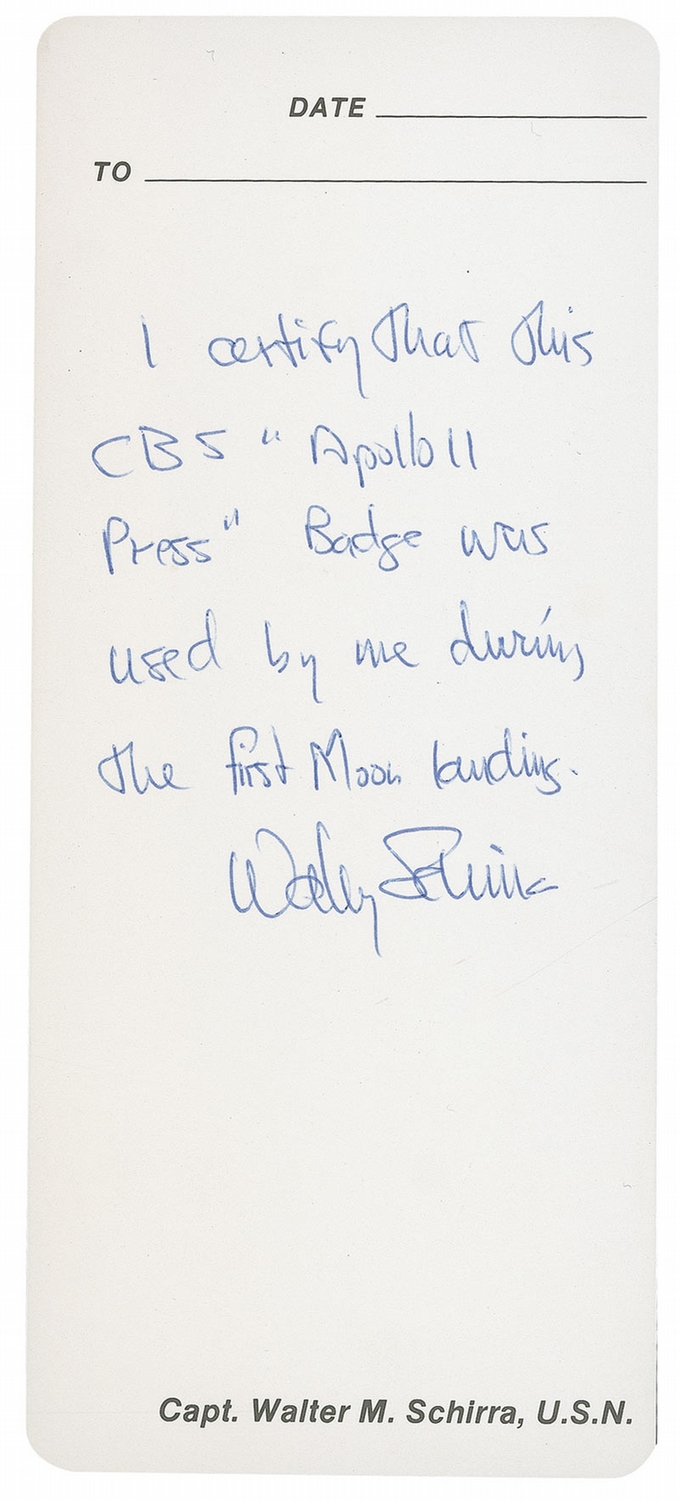 DATE
TO
I certify that this
CBS "Apollo 11
Press" Badge was
used by me during
the first Moon landing.
Wally Schirra
Capt. Walter M. Schirra, U.S.N.